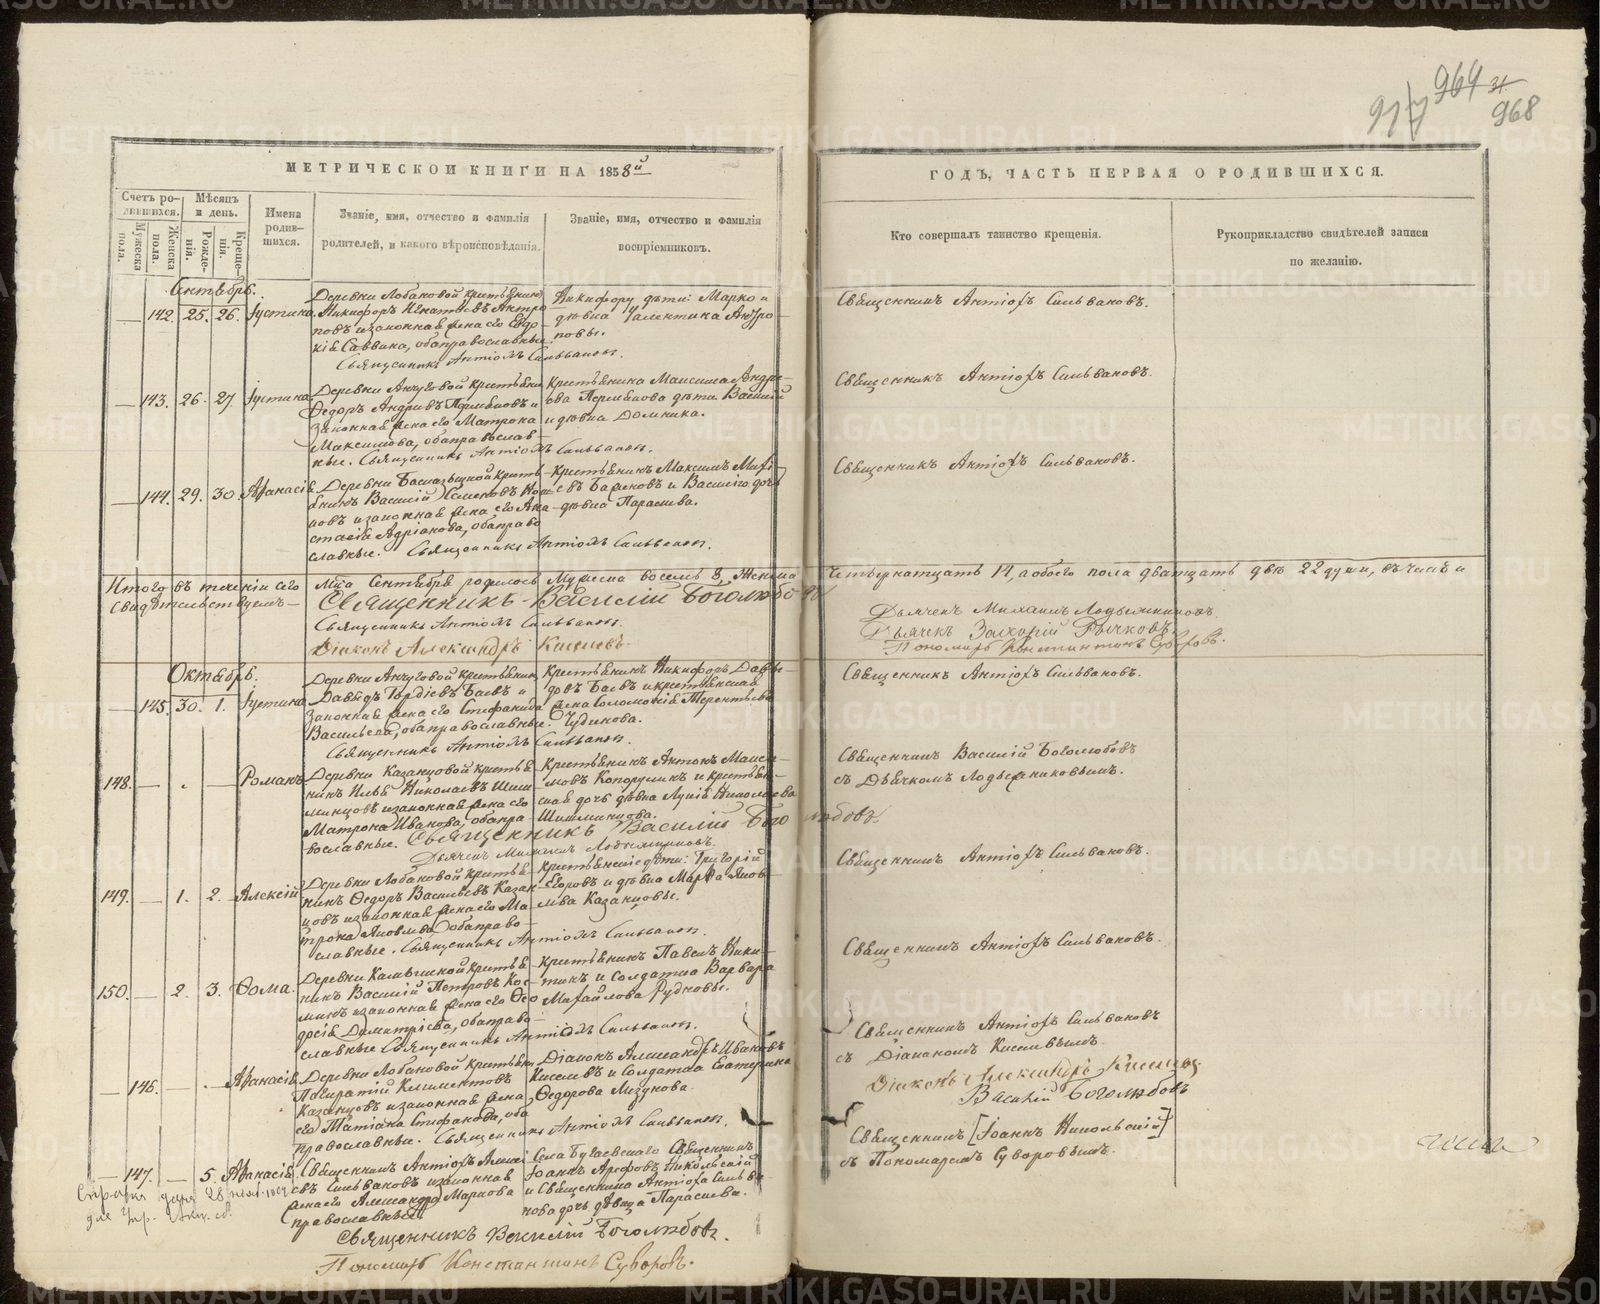 917 964 31
968
МЕТРИЧЕСКОЙ КНИГИ НА 1858й
ГОДЪ, ЧАСТЬ ПЕРВАЯ О РОДИВШИХСЯ.
Счетъ ро-
дившихся.
Мужеска
пола.
Женска
пола.
Мѣсяцъ
и день.
Рожде-
нія.
Креще-
нія.
Имена
родив-
шихся.
Званіе, имя, отчество и фамилія
родителей, и какого вѣроисповѣданія.
Званіе, имя, отчество и фамилія
воспріемниковъ.
Кто совершалъ таинство крещенія.
Рукоприкладство свидѣтелей записи
по желанію.
Сентябрь.
142. 25. 26. Іустина.
Деревни Лобановой крестьянинъ
Никифоръ Игнатьевъ Антро
повъ и законная жена его Евдо-
кія Саввина, оба православные.
Священникъ Антіохъ Сильвановъ.
Никифору дѣти: Марко и
дѣвица Валентина Антро-
повы.
Священникъ Антіохъ Сильвановъ.
143. 26. 27. Іустина
Деревни Анчуговой крестьянинъ
Ѳедоръ Андреевъ Перьмяковъ и
законная жена его Матрона
Максимова, оба православ-
ные. Священникъ Антіохъ Сильвановъ.
Крестьянина Максима Андре-
ева Пермякова дѣти Василій
и дѣвица Домника.
Священникъ Антіохъ Сильвановъ.
144. 29. 30. Аѳанасія
Василій Семеновъ
повъ и законная жена его Ана
стасія Адріанова, оба право
славные. Священникъ Антіохъ Сильвановъ.
Крестьянинъ Максимъ
и Василіго дочь
дѣвица Парасива.
Священникъ Антіохъ Сильвановъ.
Итого въ теченіи сего Мца Сентября родилось Мужеска восемь 8, Женска четырнатцать 14, а обоего пола дватцать двѣ 22 души, въ чемъ и
свидѣтельствуемъ
Священникъ Василій Боголюбовъ
Священникъ Антіохъ Сильвановъ.
Діаконъ Александръ Киселевъ.
Дьячекъ Михаилъ Лодыжниковъ.
Дьячекъ Захарій Рычковъ.
Пономарь Константинъ Суворовъ.
Октябрь.
145. 30. 1. Іустина
Деревни Анчуговой крестьянинъ
Давыдъ Гордіевъ Баевъ и
законная жена его Стефанида
Васильева, оба православные.
Священникъ Антіохъ Сильвановъ.
Крестьянинъ Никифоръ Давы-
довъ Баевъ и крестьянская
жена Соломонія Терентьева
Чудинова.
Священникъ Антіохъ Сильвановъ.
148. Романъ
Деревни Казанцовой крестья
нинъ Илья Николаевъ Шиш
минцовъ и законная жена его
Матрона Иванова, оба пра-
вославные. Священникъ Василій Боголюбовъ.
Дьячекъ Михаилъ Лодыжниковъ.
Крестьянинъ Антонъ Макси-
мовъ и крестьян-
ская дочь дѣвица Лукія Николаева
Шишминцова.
Священникъ Василій Боголюбовъ
съ Дьячкомъ Лодыжниковымъ.
149. 1. 2. Алексій
Деревни Лобановой крестья
нинъ Ѳедоръ Васильевъ Казан-
цовъ и законная жена его Ма-
трона Яковлева, оба право-
славные. Священникъ Антіохъ Сильвановъ.
Крестьянскіе дѣти: Григорій
Егоровъ и дѣвица Марѳа Яков-
лева Казанцовы.
Священникъ Антіохъ Сильвановъ.
150. 2. 3. Ѳома.
нинъ Василій Петровъ Кос-
минъ и законная жена его Ѳео
досія Димитріева, оба право-
славные Священникъ Антіохъ Сильвановъ.
Крестьянинъ Павелъ Ники-
тинъ и солдатка Варвара
Михайлова Рудновы.
Священникъ Антіохъ Сильвановъ.
146. Аѳанасія
Деревни Лобановой крестьянинъ
Климентовъ
Казанцовъ и законная жена
его Татіана Стефанова, оба
православные. Священникъ Антіохъ Сильвановъ.
Діаконъ Александръ Ивановъ
Киселевъ и солдатка Екатерина
Ѳедорова Мизунова.
Священникъ Антіохъ Сильвановъ
съ Діакономъ Киселевымъ.
Діаконъ Александръ Киселевъ
Василій Боголюбовъ
147. 5. Аѳанасія
Священникъ Антіохъ Алексі
евъ Сильвановъ и законная
жена его Александра Маркова
православные
Села Бугаевскаго Священникъ
Іоаннъ Арефовъ Никольскій
и Священника Антіоха Сильва-
нова дочь дѣвица Парасива.
Священникъ [Іоаннъ Никольскій]
съ Пономаремъ Суворовымъ.
Священникъ Василій Боголюбовъ.
Пономарь Константинъ Суворовъ.
METRIKI.GASO-URAL.RU